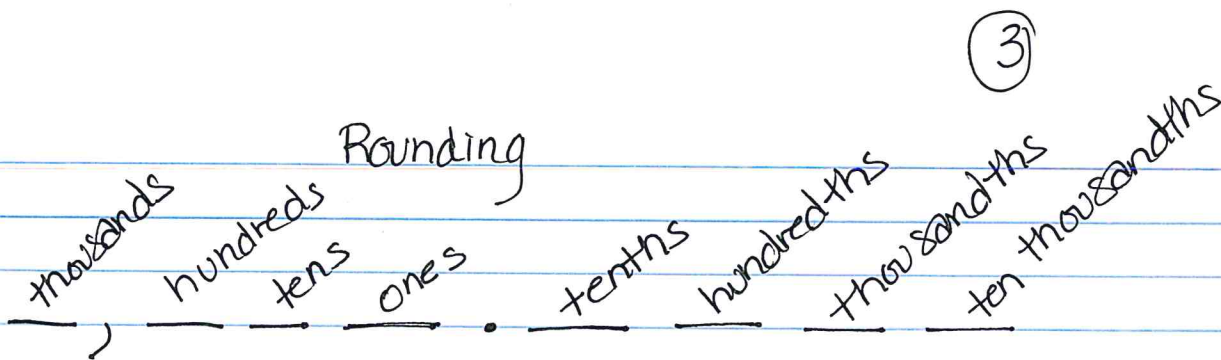 3
Rounding
thousands hundreds tens ones tenths hundredths thousandths ten thousandths
__ , __ __ __ . __ __ __ __